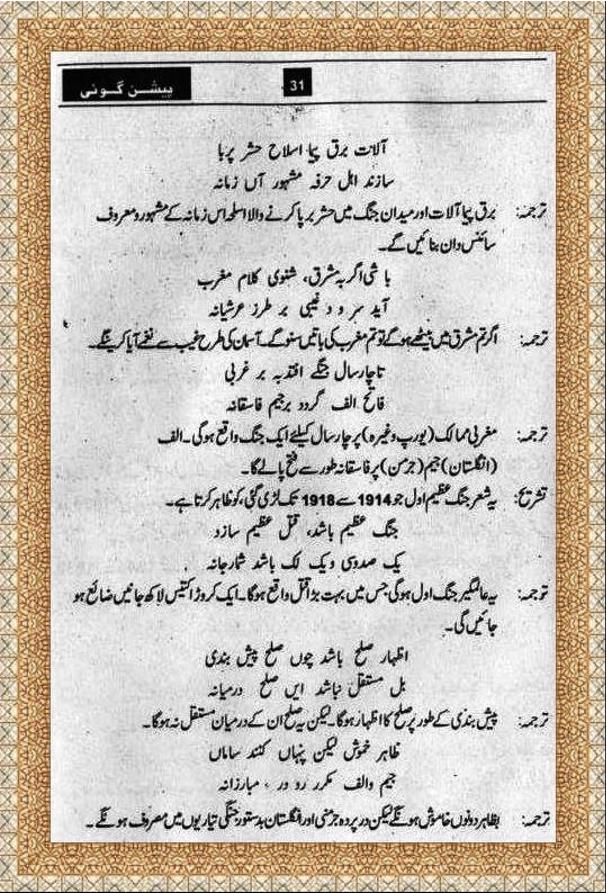 پیشن گوئی
31
آلات برق پیا اسلاح حشر برپا
سازند اہل حرفہ مشہور آں زمانہ
ترجمہ: برق پیا آلات اور میدان جنگ میں حشر برپا کرنے والا اسلحہ اس زمانہ کے مشہور و معروف
سائنس دان بنائیں گے۔
باشی اگر بہ مشرق، شنوی کلام مغرب
آید سرود غیبی بر طرز عرشیانہ
ترجمہ: اگر تم مشرق میں بیٹھے ہو گے تو تم مغرب کی باتیں سنو گے۔ آسمان کی طرح غیب سے نغمے آیا کرینگے۔
تا چار سال جنگے افتد بہ بر غربی
فاتح الف گردد بر جیم فاسقانہ
ترجمہ: مغربی ممالک (یورپ وغیرہ) پر چار سال کیلئے ایک جنگ واقع ہوگی۔ الف
(انگلستان) جیم (جرمن) پر فاسقانہ طور سے فتح پالے گا۔
تشریح: یہ شعر جنگ عظیم اول جو 1914 سے 1918 تک لڑی گئی، کو ظاہر کرتا ہے۔
جنگ عظیم باشد، قتل عظیم سازد
یک صدوسی ویک لک باشد شمار جانہ
ترجمہ: یہ عالمگیر جنگ اول ہوگی جس میں بہت بڑا قتل واقع ہوگا۔ ایک کروڑ اکتیس لاکھ جانیں ضائع ہو
جائیں گی۔
اظہار صلح باشد چوں صلح پیش بندی
بل مستقل نباشد ایں صلح درمیانہ
ترجمہ: پیش بندی کے طور پر صلح کا اظہار ہوگا۔ لیکن یہ صلح ان کے درمیان مستقل نہ ہوگا۔
ظاہر خموش لیکن پنہاں کنند ساماں
جیم والف مکرر رو در مبارزانہ
ترجمہ: بظاہر دونوں خاموش ہونگے لیکن در پردہ جرمنی اور انگلستان بدستور جنگی تیاریوں میں مصروف ہونگے۔